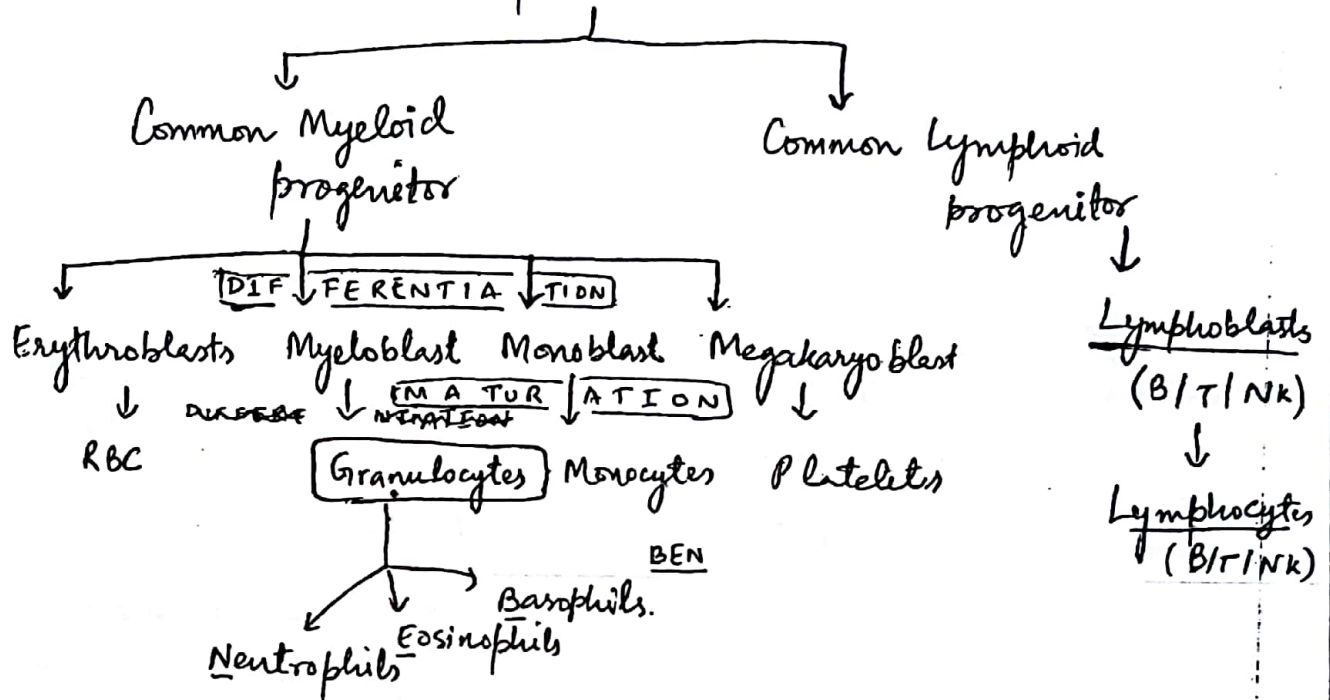 Common Myeloid
progenitor
Common Lymphoid
progenitor
DIFFERENTIATION
Erythroblasts Myeloblast Monoblast Megakaryoblast
Lymphoblasts
(B/T/NK)
MATURATION
RBC
Granulocytes Monocytes Platelets
Lymphocytes
(B/T/NK)
BEN
Basophils.
Eosinophils
Neutrophils